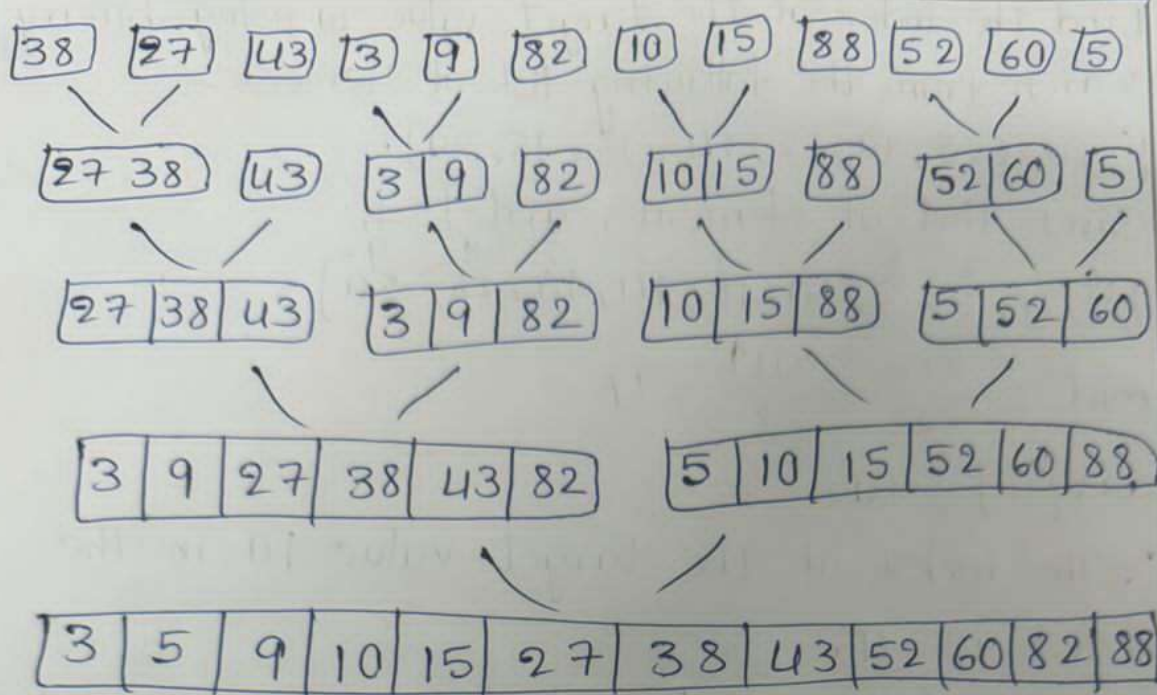 38 27 43 3 9 82 10 15 88 52 60 5
27 38 43 3 9 82 10 15 88 52 60 5
27 38 43 3 9 82 10 15 88 5 52 60
3 9 27 38 43 82 5 10 15 52 60 88
3 5 9 10 15 27 38 43 52 60 82 88